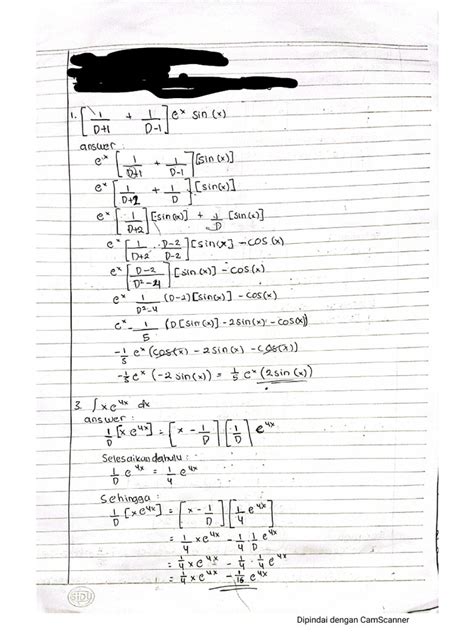 1. [1/D+1 + 1/D-1] e^x sin (x)
answer :
e^x [1/D+1 + 1/D-1] [sin(x)]
e^x [1/D+2 + 1/D] [sin(x)]
e^x [1/D+2] [sin(x)] + 1/D [sin(x)]
e^x [1/D+2 . D-2/D-2] [sin(x)] - cos (x)
e^x [D-2/D²-4] [sin(x)] - cos(x)
e^x 1/D²-4 (D-2)[sin(x)] - cos(x)
e^x - 1/5 (D[sin(x)] - 2sin(x) - cos(x))
-1/5 e^x (cos(x) - 2 sin(x) - cos(x))
-1/5 e^x (-2 sin(x)) = 1/5 e^x (2 sin (x))
3. ∫ x e^4x dx
answer :
1/D [x e^4x] = [x - 1/D] [1/D] e^4x
Selesaikan dahulu :
1/D e^4x = 1/4 e^4x
Sehingga :
1/D [x e^4x] = [x - 1/D] [1/4 e^4x]
= 1/4 x e^4x - 1/4 1/D e^4x
= 1/4 x e^4x - 1/4 . 1/4 e^4x
= 1/4 x e^4x - 1/16 e^4x
SIDU
Dipindai dengan CamScanner